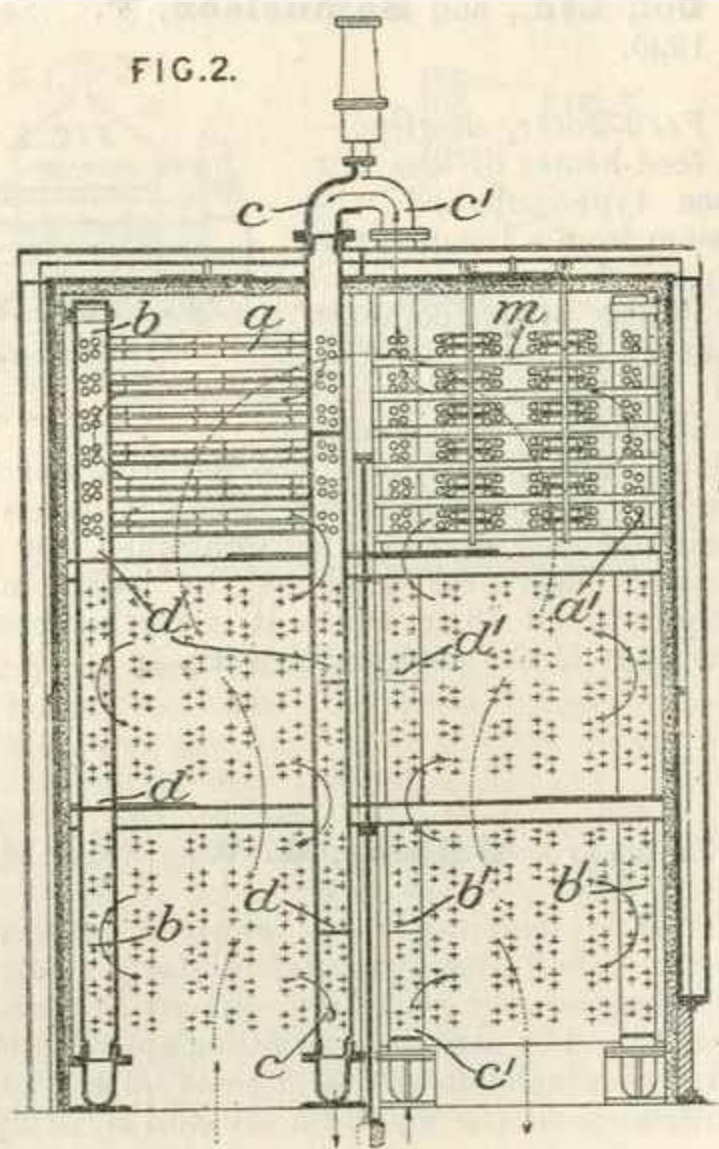 FIG.2.
c c'
b a m
a'
d d'
d
d b' b'
b
c c'